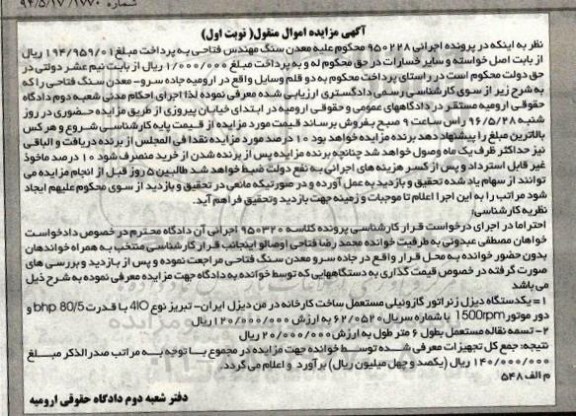 شماره ۱۷۷۰-۹۴/۵/۱۷
آگهی مزایده اموال منقول( نوبت اول)
نظر به اینکه در پرونده اجرائی ۹۵۰۲۲۸ محکوم علیه معدن سنگ مهندس فتاحی به پرداخت مبلغ ۱۹۴/۹۵۹/۰۱ ریال
از بابت اصل خواسته و سایر خسارات در حق محکوم له و به پرداخت مبلغ ۱/۰۰۰/۰۰۰ ریال از بابت نیم عشر دولتی در
حق دولت محکوم است در راستای پرداخت محکوم به دو قلم وسایل واقع در ارومیه جاده سرو- معدن سنگ فتاحی را که
به شرح زیر از سوی کارشناسی رسمی دادگستری ارزیابی شده معرفی نموده لذا اجرای احکام مدنی شعبه دوم دادگاه
حقوقی ارومیه مستقر در دادگاههای عمومی و حقوقی ارومیه در ابتدای خیابان پیروزی از طریق مزایده حضوری در روز
شنبه ۹۶/۵/۲۸ راس ساعت ۹ صبح بفروش برساند قیمت مورد مزایده از قیمت پایه کارشناسی شروع و هر کس
بالاترین مبلغ را پیشنهاد دهد برنده مزایده خواهد بود ۱۰ درصد مورد مزایده نقدا فی المجلس از برنده دریافت و الباقی
نیز حداکثر ظرف یک ماه وصول خواهد شد چنانچه برنده مزایده پس از برنده شدن از خرید منصرف شود ۱۰ درصد ماخوذ
غیر قابل استرداد و پس از کسر هزینه های اجرائی به نفع دولت ضبط خواهد شد طالبین ۵ روز قبل از انجام مزایده می
توانند از سهام یاد شده تحقیق و بازدید به عمل آورده و در صورتیکه مانعی در تحقیق و بازدید از سوی محکوم علیهم ایجاد
شود مراتب را به این اجرا اعلام تا موجبات و زمینه جهت بازدید وتحقیق فراهم آید.
نظریه کارشناسی:
احتراما در اجرای درخواست قرار کارشناسی پرونده کلاسه ۹۵۰۳۲۰ اجرائی آن دادگاه محترم در خصوص دادخواست
خواهان مصطفی عبدونی به طرفیت خوانده محمد رضا فتاحی اوصالو اینجانب قرار کارشناسی منتخب به همراه خواندهان
بدون حضور خوانده به محل قرار واقع در جاده سرو معدن سنگ فتاحی مراجعت نموده و پس از بازدید و بررسی های
صورت گرفته در خصوص قیمت گذاری به دستگاههایی که توسط خوانده به دادگاه جهت مزایده معرفی نموده به شرح ذیل
می باشد
۱= یکدستگاه دیزل ژنراتور گازوئیلی مستعمل ساخت کارخانه در من دیزل ایران- تبریز نوع 4IO با قدرت 80/5 bhp و
دور موتور 1500rpm با شماره سریال ۶۲/۰۵۲۰ به ارزش ۱۲۰/۰۰۰/۰۰۰ ریال
۲- تسمه نقاله مستعمل بطول ۶ متر طول به ارزش ۲۰/۰۰۰/۰۰۰ ریال
نتیجه: جمع کل تجهیزات معرفی شده توسط خوانده جهت مزایده در مجموع با توجه به مراتب صدر الذکر مبلغ
۱۴۰/۰۰۰/۰۰۰ ریال (یکصد و چهل میلیون ریال) برآورد و اعلام می گردد.
م الف ۵۴۸
دفتر شعبه دوم دادگاه حقوقی ارومیه